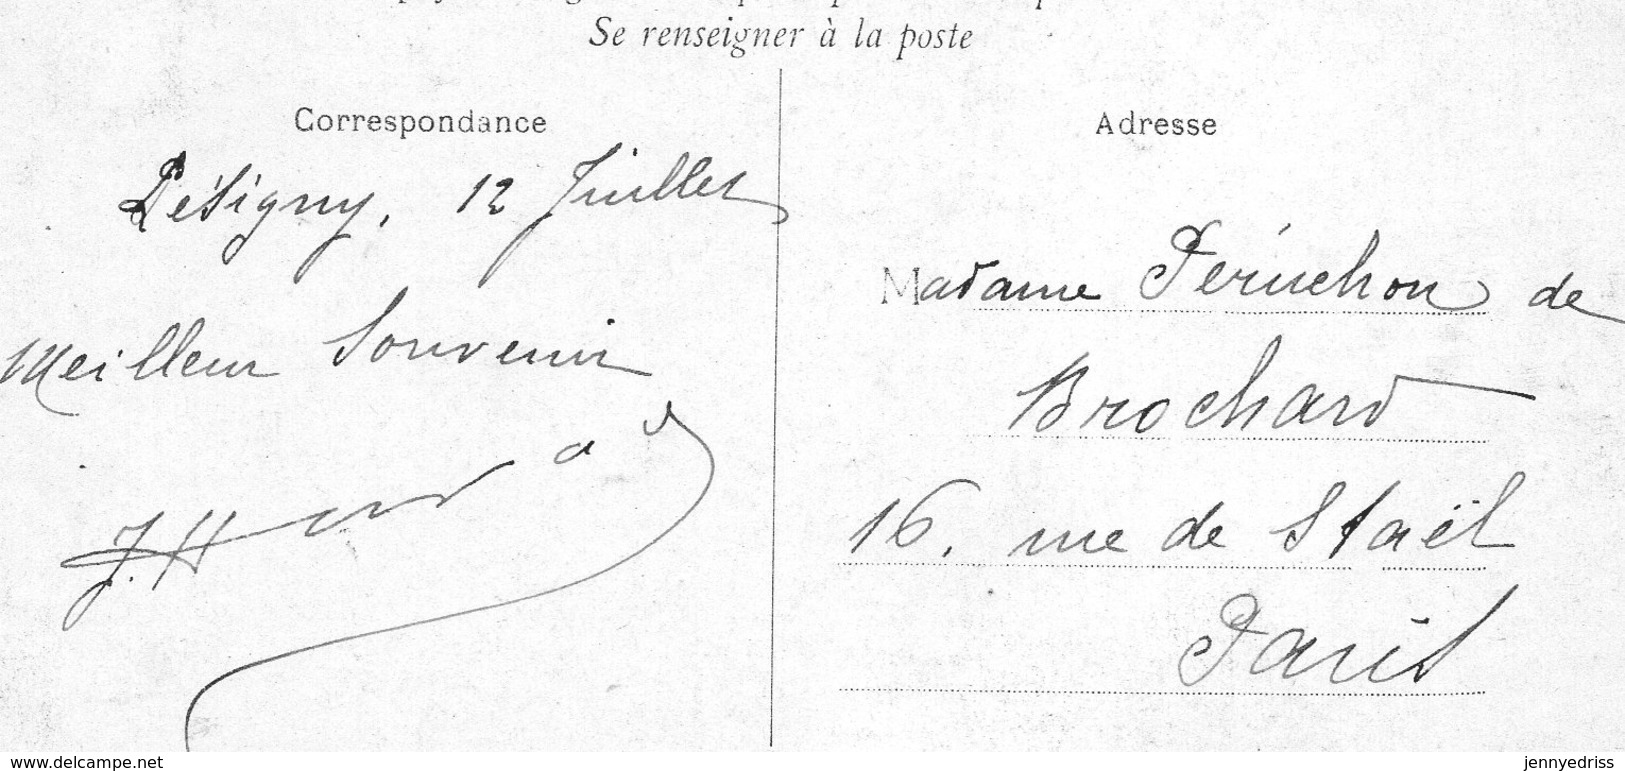 Se renseigner à la poste
Correspondance
Lésigny, 12 Juillet
Meilleur Souvenir
J. H
Adresse
Madame Peruchon de
Brochard
16, rue de Staël
Paris
delcampe.net
jennyedriss